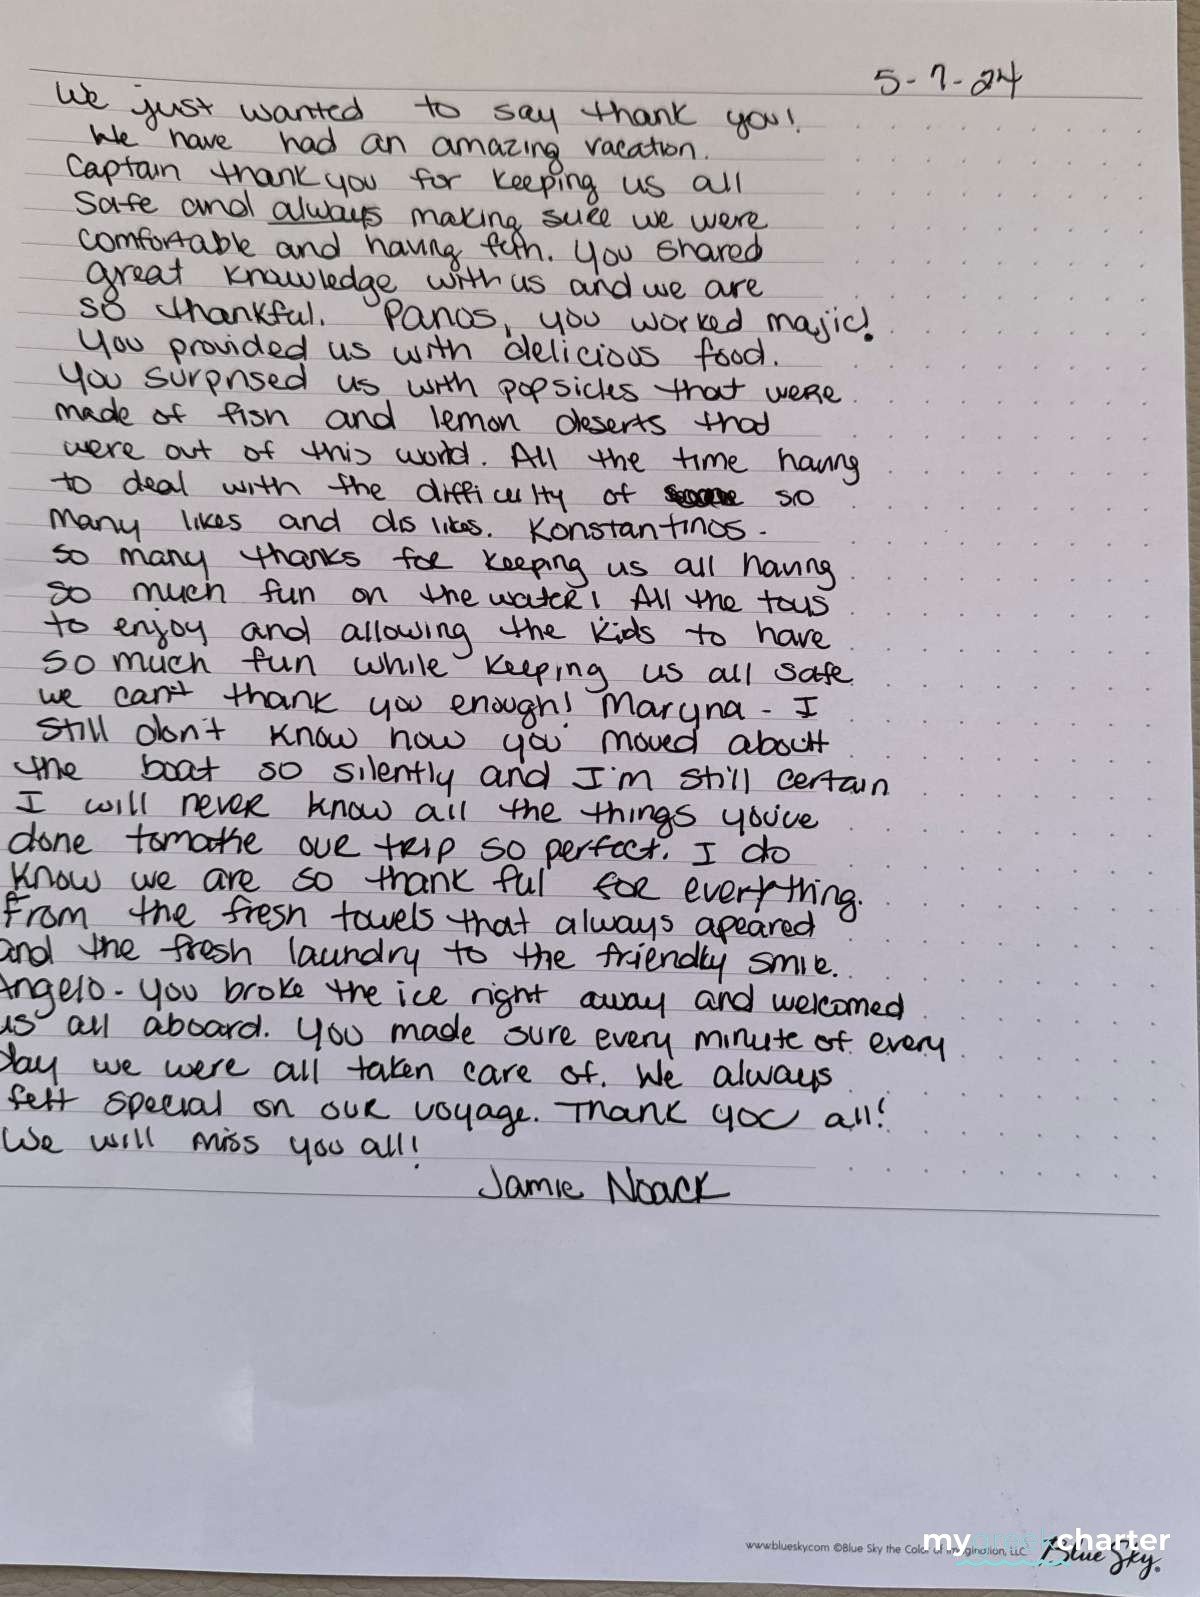 5-7-24
We just wanted to say thank you!
We have had an amazing vacation.
Captain thank you for keeping us all
safe and always making sure we were
comfortable and having fun. You shared
great knowledge with us and we are
so thankful. Panos, you worked majic!
You provided us with delicious food.
You surprised us with popsicles that were
made of fish and lemon deserts that
were out of this world. All the time having
to deal with the difficulty of so
many likes and dislikes. Konstantinos -
so many thanks for keeping us all having
so much fun on the water! All the toys
to enjoy and allowing the kids to have
so much fun while keeping us all safe
we can't thank you enough! Maryna - I
still don't know how you moved about
the boat so silently and I'm still certain
I will never know all the things you've
done to make our trip so perfect. I do
know we are so thankful for everything.
From the fresh towels that always apeared
and the fresh laundry to the friendly smile.
Angelo - you broke the ice right away and welcomed
us all aboard. You made sure every minute of every
day we were all taken care of. We always
felt special on our voyage. Thank you all!
We will miss you all!
Jamie Noack
www.bluesky.com ©Blue Sky the Color of Imagination, LLC
Blue Sky
mygreekcharter